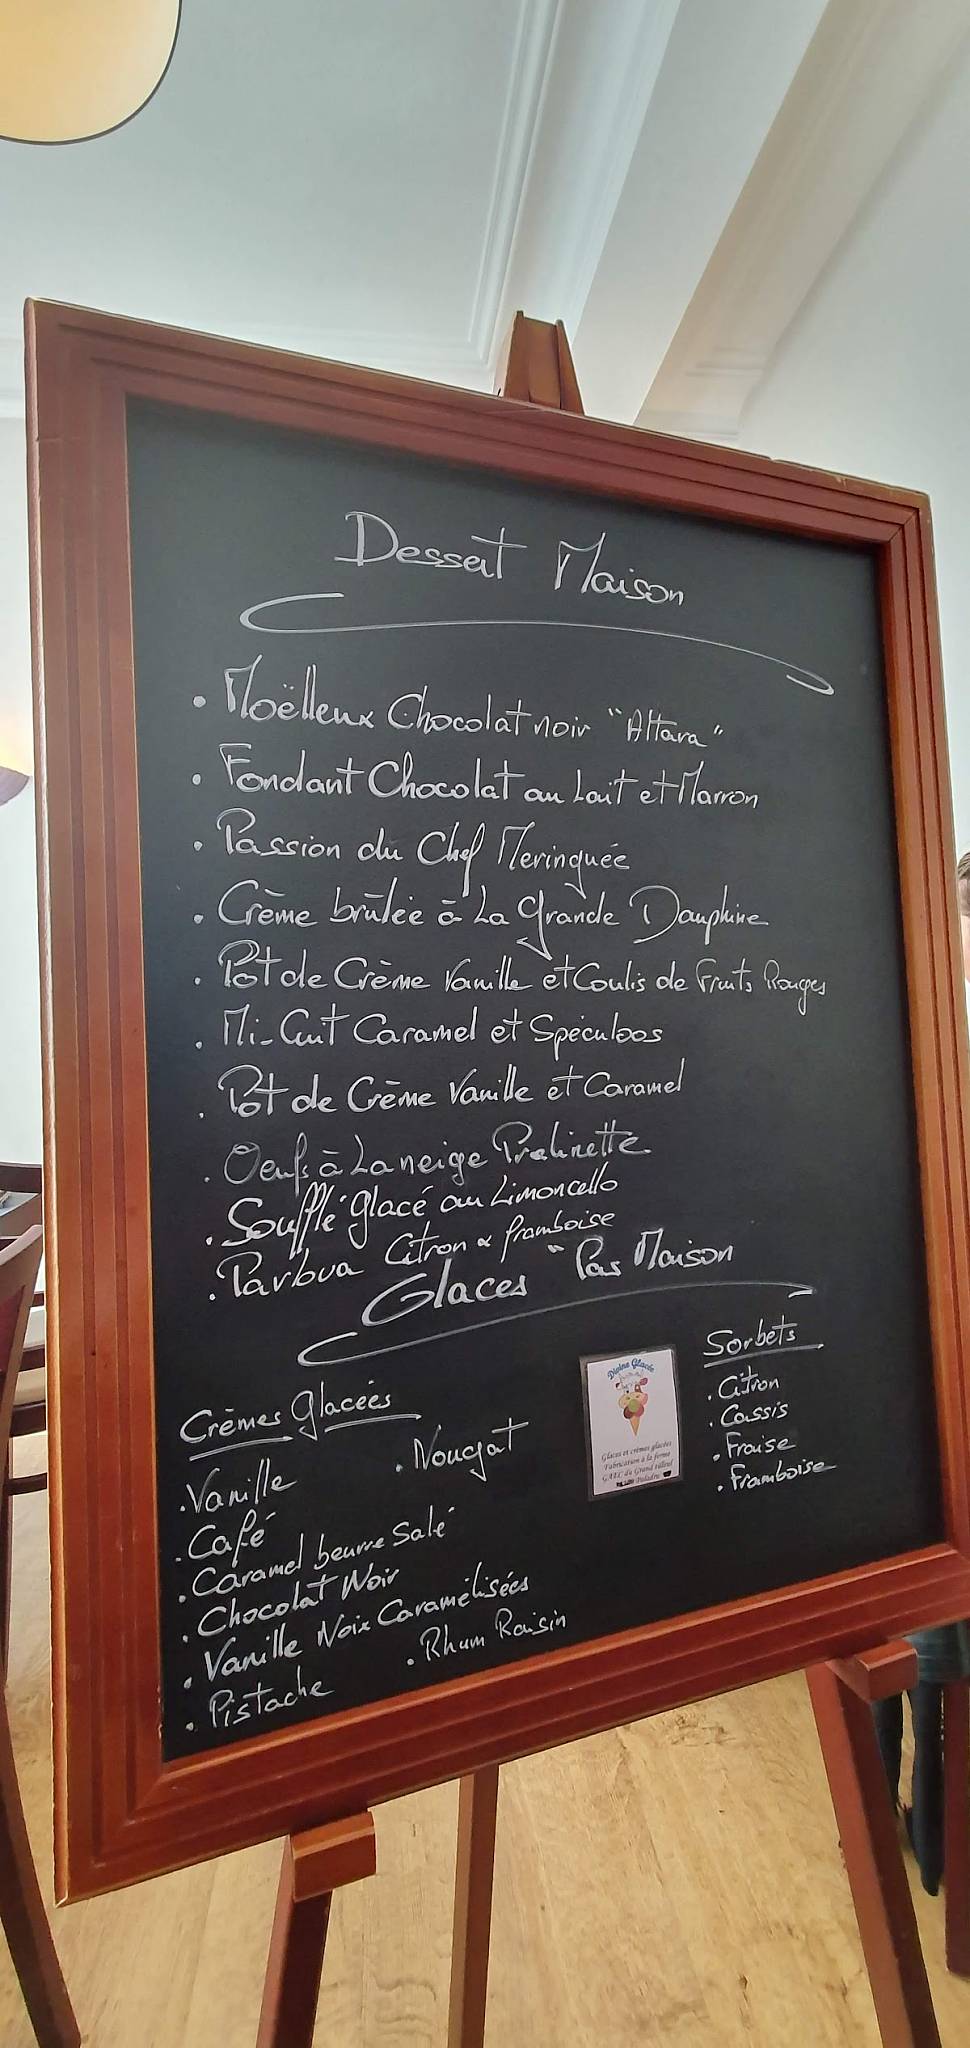 Dessert Maison
. Moëlleux Chocolat noir "Altara"
. Fondant Chocolat au Lait et Marron
. Passion du Chef Meringuée
. Crème brûlée à La grande Dauphine
. Pot de Crème Vanille et Coulis de Fruits Rouges
. Mi-Cuit Caramel et Spéculoos
. Pot de Crème Vanille et Caramel
. Oeufs à La neige Pralinette
. Soufflé Glacé au Limoncello
. Pavlova Citron & framboise
Glaces "Pas Maison
Crèmes Glacées
. Vanille
. Café
. Caramel beurre Salé
. Chocolat Noir
. Vanille Noix Caramélisées
. Pistache
. Nougat
. Rhum Raisin
Divine Glacée
Glaces et crèmes glacées
Fabrication à la ferme
GAEC du Grand tilleul
Paladru
Sorbets
. Citron
. Cassis
. Fraise
. Framboise